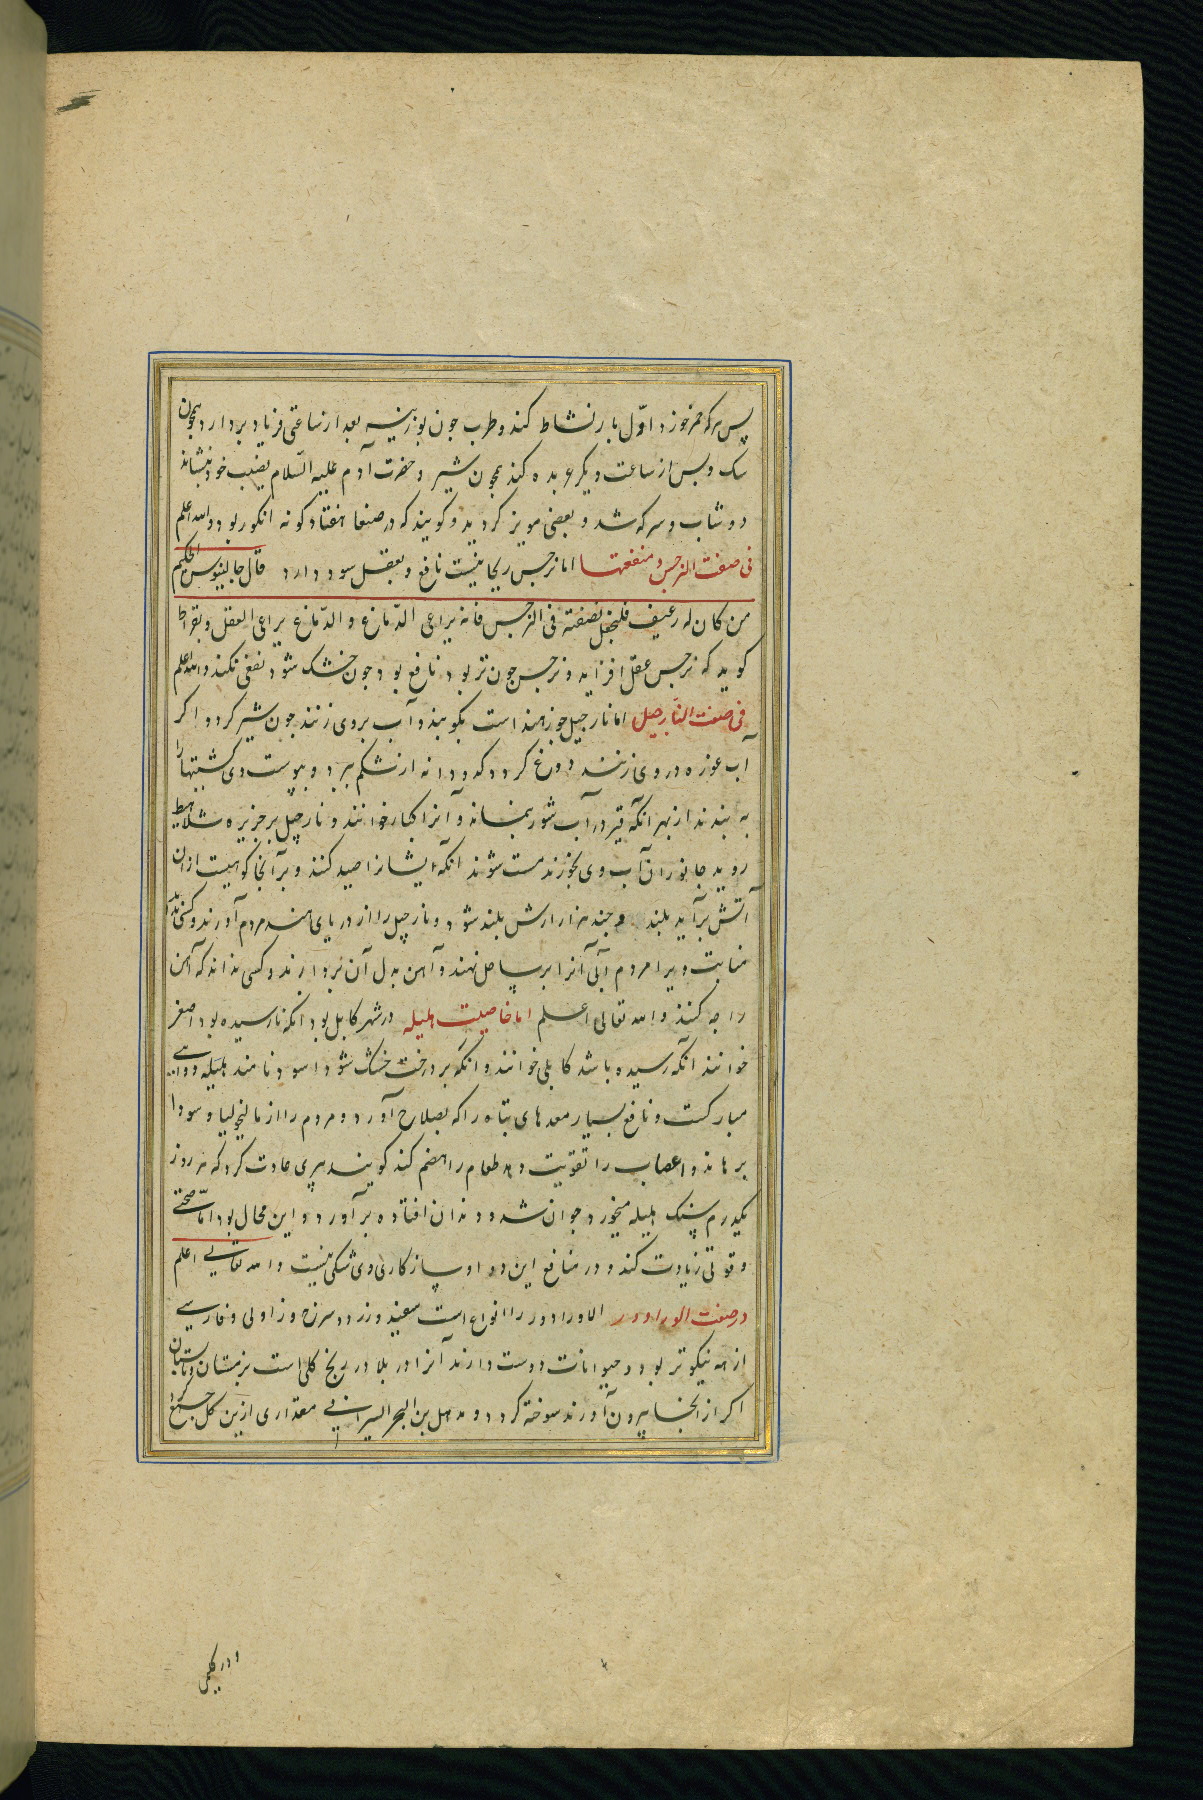 پس هر که خمر خورد اوّل بار نشاط کند و طرب چون بوزینه بعد از ساعتی فریاد بردارد همچون
سک و پس از ساعت دیکر عربده کند همچون شیر و حضرت آدم علیه السّلام بضیب خود بنشاند
دوشاب و سرکه شد و بعضی مویز کردید و کویند که در صنعا هفتاد کونه انکور بود والله اعلم
فی صفت النرجس و منفعتها اما نرجس ریحانیست نافع و بعقل سود دارد قال جالینوس الحکیم
من کان له رغیف فلیجعل نصفه فی النرجس فانه یراعی الدّماغ و الدّماغ یراعی العقل و بقراط
کوید که نرجس عقل افزاید و نرجس چون تر بود نافع بود چون خشک شود نفعی نکند والله اعلم
فی صفت النارجیل اما نارجیل جوز هند است بکوبند و آب بر وی زنند چون شیر کردد و اکر
آب غوزه در وی زنند دوغ کردد کدو دانه از شکم ببرد و بپوست وی کشتیها را
به بندند از بهر آنکه قیر در آب شور بنماند و آنرا کنبار خوانند و نارجیل بر جزیره شلاهط
روید جانوران آب وی بخورند مست شوند آنکه ایشانرا صید کنند و بر آنجا کوهیست از آن
آتش برآید بلند هر چند هزار ارش بلند شود و نارجیل را از دریای هند مردم آورند و کسی
ویرا مردم آبی آنرا بر ساحل نهند و آهن بدل آن بردارند و کسی نداند که آهن
را چه کنند والله تعالی اعلم اما خاصیت هلیله در شهر کابل بود آنکه نارسیده بود اصفر
خوانند آنکه رسیده باشد کابلی خوانند و آنکه بر درخت خشک شود اسود نامند هلیله دوایی
مبارکست و نافع بسیار معدهای تباه را که بصلاح آورد و مردم را از مالیخولیا و سودا
برهاند و اعصاب را تقویت دهد طعام را هضم کند کویند پیری عادت کرد که هر روز
یکدرم سنک هلیله میخورد جوان شد و دندان افتاده برآورد و این محال بود امّا صحّتی
و قوّتی زیادت کند و در منافع این دو او سازکاری وی شکی نیست والله تعالی اعلم
در صفت الوراد ورد الاوراد ورد را انواع است سفید و زرد و سرخ و زاولی و فارسی
از همه نیکوتر بود و حیوانات دوست دارند آنرا در بلاد رنج کلی است بزمستان و تابستان
اکر از آنجا بیرون آورند سوخته کردد و مدهل بن البحر السیرافی مقداری ازین کل جمع کرد
در کلیمی